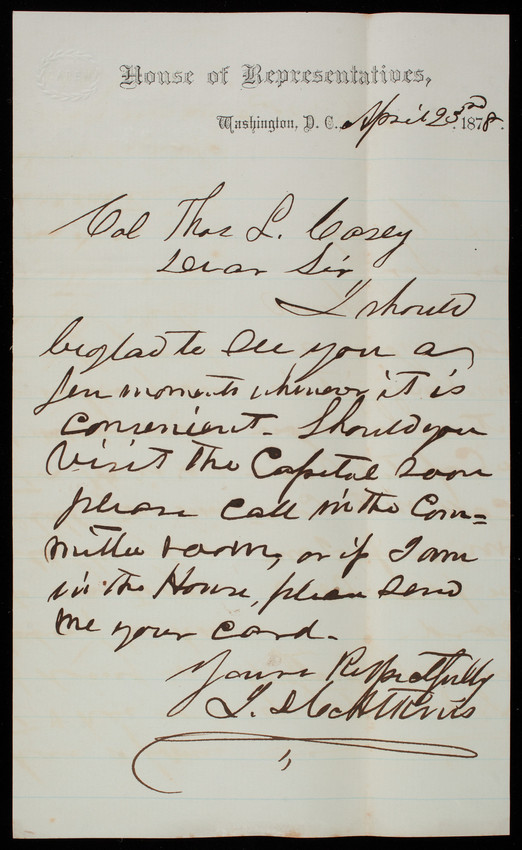 House of Representatives,
Washington, D. C., April 23rd, 1878.
Col Thos L. Casey
Dear Sir
I should
be glad to see you a
few moments whenever it is
convenient. Should you
visit the Capitol soon
please call in the Com=
mittee room, or if I am
in the House, please send
me your card.
Yours Respectfully
J. D. C. Atkins